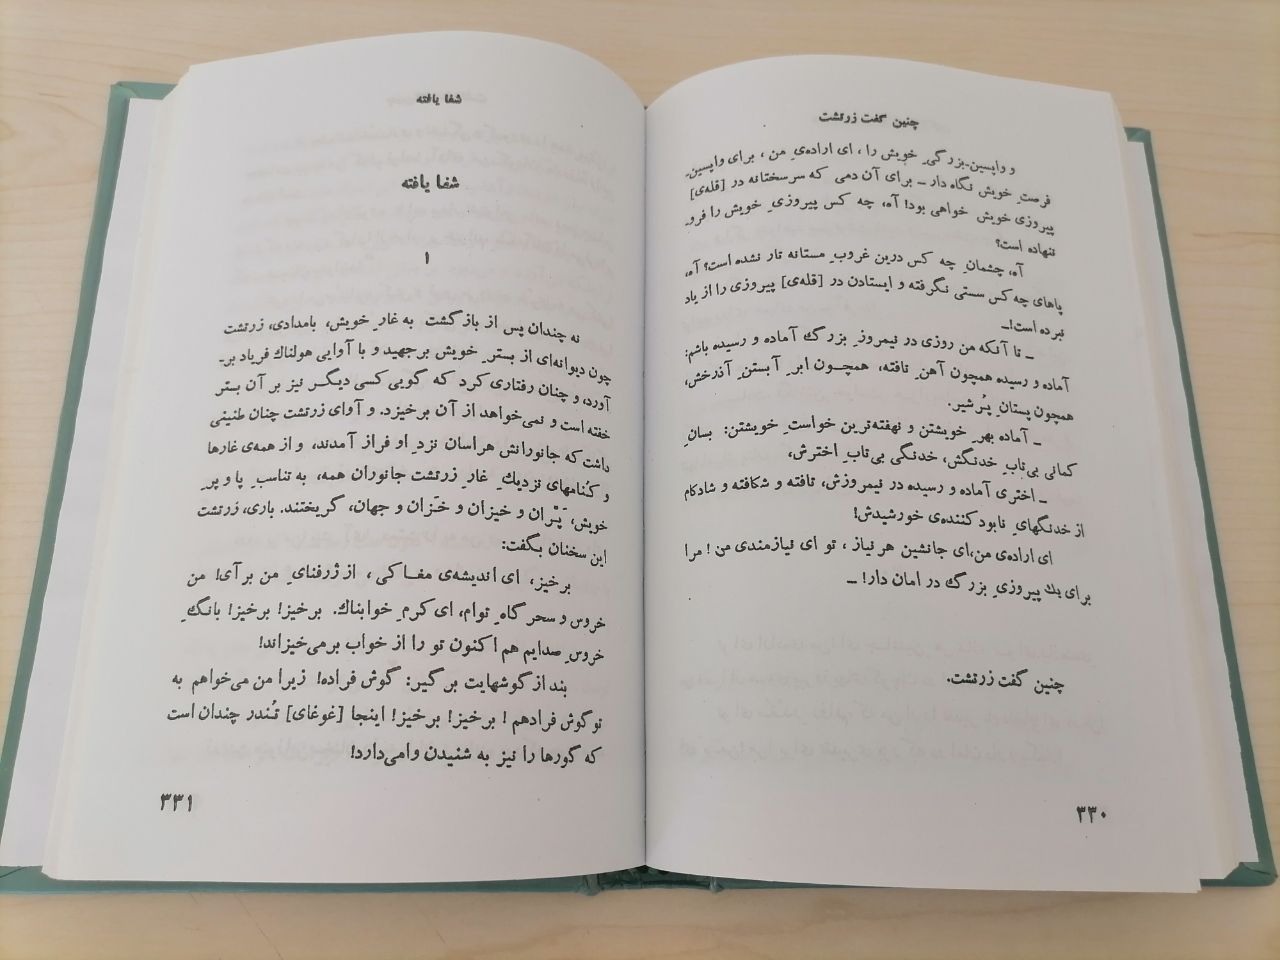 چنین گفت زرتشت
و واپسین‌ـ‌بزرگیِ خویش را ، ای اراده‌یِ من ، برای واپسین‌ـ
فرصتِ خویش نگاه دار ــ برای آن دمی که سرسختانه در [قله‌ی]
پیروزی خویش خواهی بود! آه، چه کس پیروزیِ خویش را فرو‌ـ
ننهاده است؟
آه، چشمانِ چه کس درین غروبِ مستانه تار نشده است؟ آه،
پاهای چه کس سستی نگرفته و ایستادن در [قله‌ی] پیروزی را از یاد
نبرده است!ــ
ــ تا آنکه من روزی در نیمروزِ بزرگ آماده و رسیده باشم:
آماده و رسیده همچون آهنِ تافته، همچـون ابرِ آبستنِ آذرخش،
همچون پستانِ پُرشیر.
ــ آماده بهرِ خویشتن و نهفته‌ترین خواستِ خویشتن: بسانِ
کمانی بی‌تابِ خدنگش، خدنگی بی‌تابِ اخترش،
ــ اختری آماده و رسیده در نیمروزش، تافته و شکافته و شادکام
از خدنگهایِ نابودکننده‌ی خورشیدش!
ای اراده‌ی من،ای جانشین هر نیاز ، تو ای نیازمندی من ! مرا
برای یك پیروزیِ بزرگ در امان دار! ــ
چنین گفت زرتشت.
۳۳۰
شفا یافته
شفا یافته
۱
نه چندان پس از بازگشت به غارِ خویش، بامدادی، زرتشت
چون دیوانه‌ای از بسترِ خویش برجهید و با آوایی هولناك فریاد بر‌ـ
آورد، و چنان رفتاری کرد که گویی کسی دیگـر نیز بر آن بستر
خفته است و نمی‌خواهد از آن برخیزد. و آوای زرتشت چنان طنینی
داشت که جانورانش هراسان نزدِ او فراز آمدند، و از همه‌ی غارها
و کنامهای نزدیكِ غارِ زرتشت جانوران همه، به تناسبِ پا و پرِ
خویش، پَرّان و خیزان و خَزان و جهان، گریختند. باری، زرتشت
این سخنان بگفت:
برخیز، ای اندیشه‌ی مغاکی ، از ژرفنایِ من برآی! من
خروس و سحرگاهِ توام، ای کرمِ خوابناك. برخیز! برخیز! بانگِ
خروسِ صدایم هم‌اکنون تو را از خواب برمی‌خیزاند!
بند از گوشهایت برگیر: گوش فراده! زیرا من می‌خواهم به
تو گوش فرادهم ! برخیز! برخیز! اینجا [غوغای] تُندر چندان است
که گورها را نیز به شنیدن وامی‌دارد!
۳۳۱